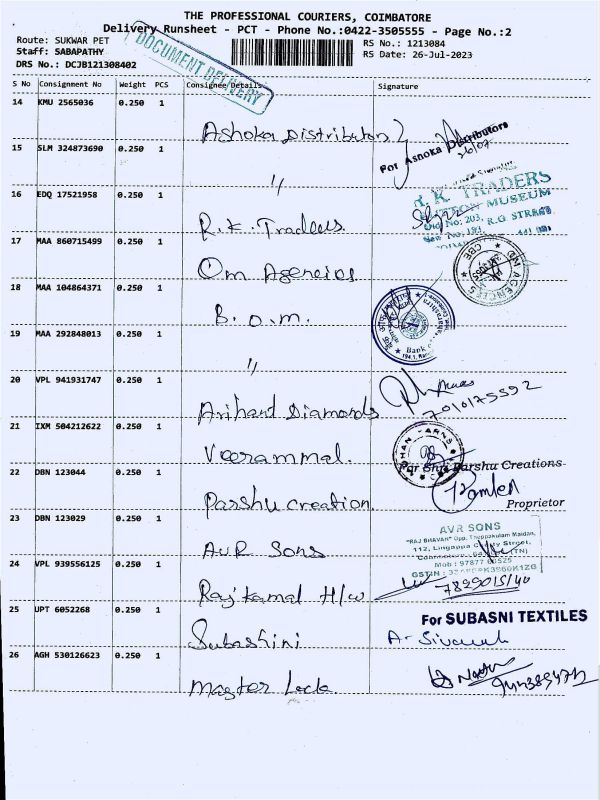 THE PROFESSIONAL COURIERS, COIMBATORE
Delivery Runsheet - PCT - Phone No.:0422-3505555 - Page No.:2
Route: SUKWAR PET
RS No.: 1213084
Staff: SABAPATHY
RS Date: 26-Jul-2023
DRS No.: DCJB121308402
DOCUMENT DELIVERY
S No Consignment No Weight PCS Consignee Details Signature
14 KMU 2565036 0.250 1
Ashoka Distributors
For Ashoka Distributors
26/07
15 SLM 324873690 0.250 1
"
R.K. TRADERS
BUTTON MUSEUM
Old No: 203, R.G STREET
16 EDQ 17521958 0.250 1
R.K. Traders
17 MAA 860715499 0.250 1
Om Agencies
OM AGENCIES
CBE
18 MAA 104864371 0.250 1
B.O.M.
Bank
19 MAA 292848013 0.250 1
"
20 VPL 941931747 0.250 1
Arihant Diamonds
7010175592
21 IXM 504212622 0.250 1
Veerammal.
For Shri Parshu Creations
22 DBN 123044 0.250 1
Parshu Creation
Proprietor
23 DBN 123029 0.250 1
AVR Sons
AVR SONS
"RAJ BHAVAN" Opp. Theppakulam Maidan,
112, Lingappa Chetty Street,
24 VPL 939556125 0.250 1
Rajkamal H/w
7899015140
25 UPT 6052268 0.250 1
Subashini
For SUBASNI TEXTILES
26 AGH 530126623 0.250 1
Master Lock